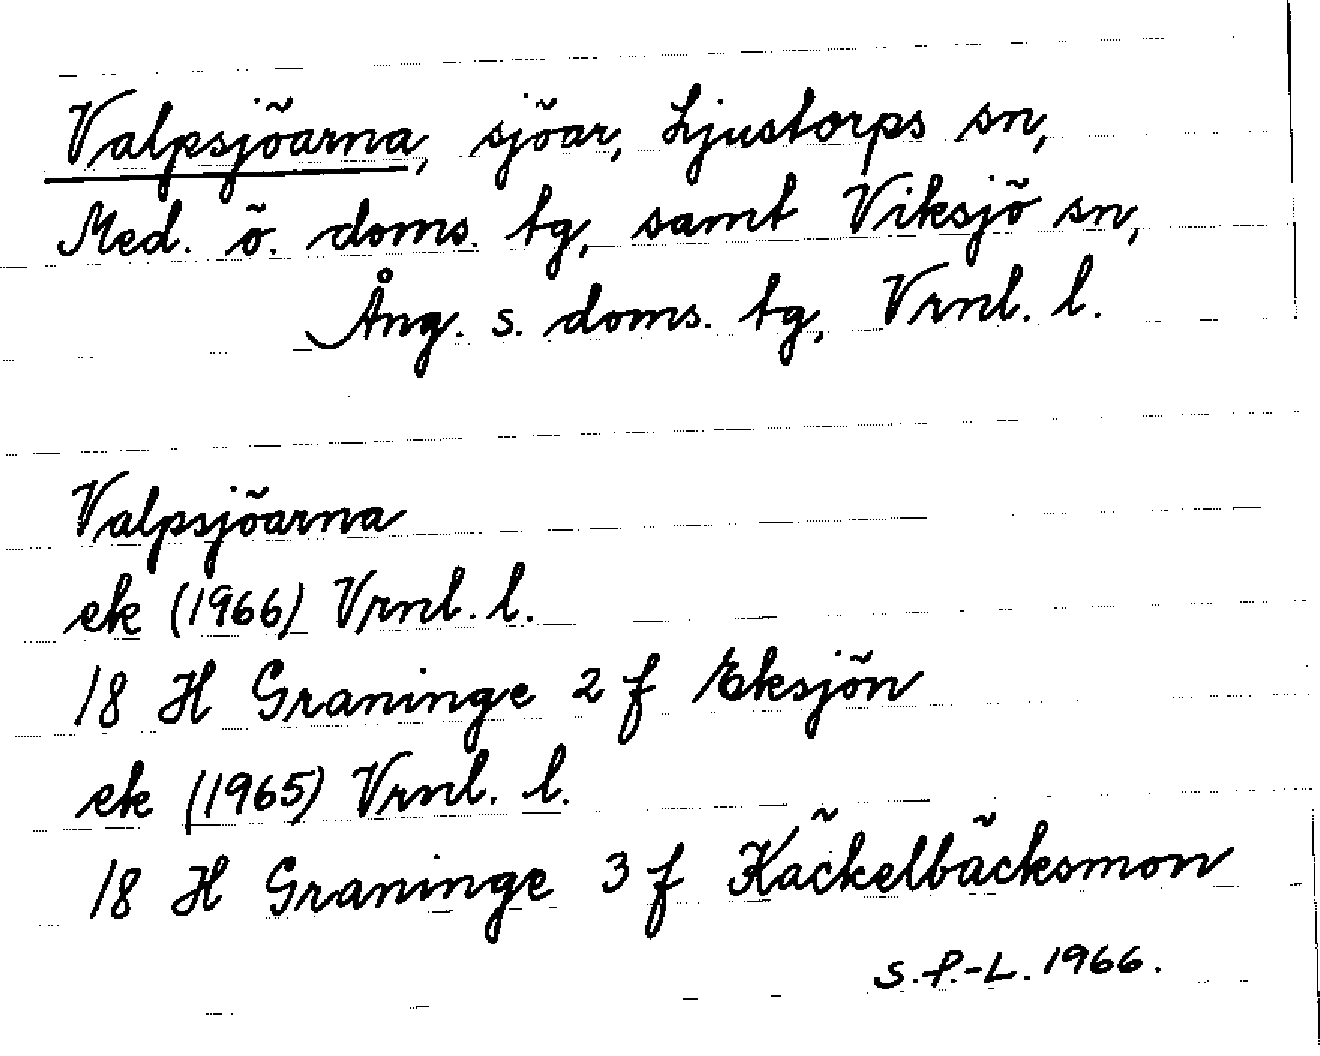 Valpsjöarna, sjöar, Ljustorps sn,
Med. ö. doms. tg, samt Viksjö sn,
Ång. s. doms. tg, Vrnl. l.
Valpsjöarna
ek (1966) Vrnl. l.
18 H Graninge 2 f Eksjön
ek (1965) Vrnl. l.
18 H Graninge 3 f Käckelbäcksmon
S.P.-L. 1966.